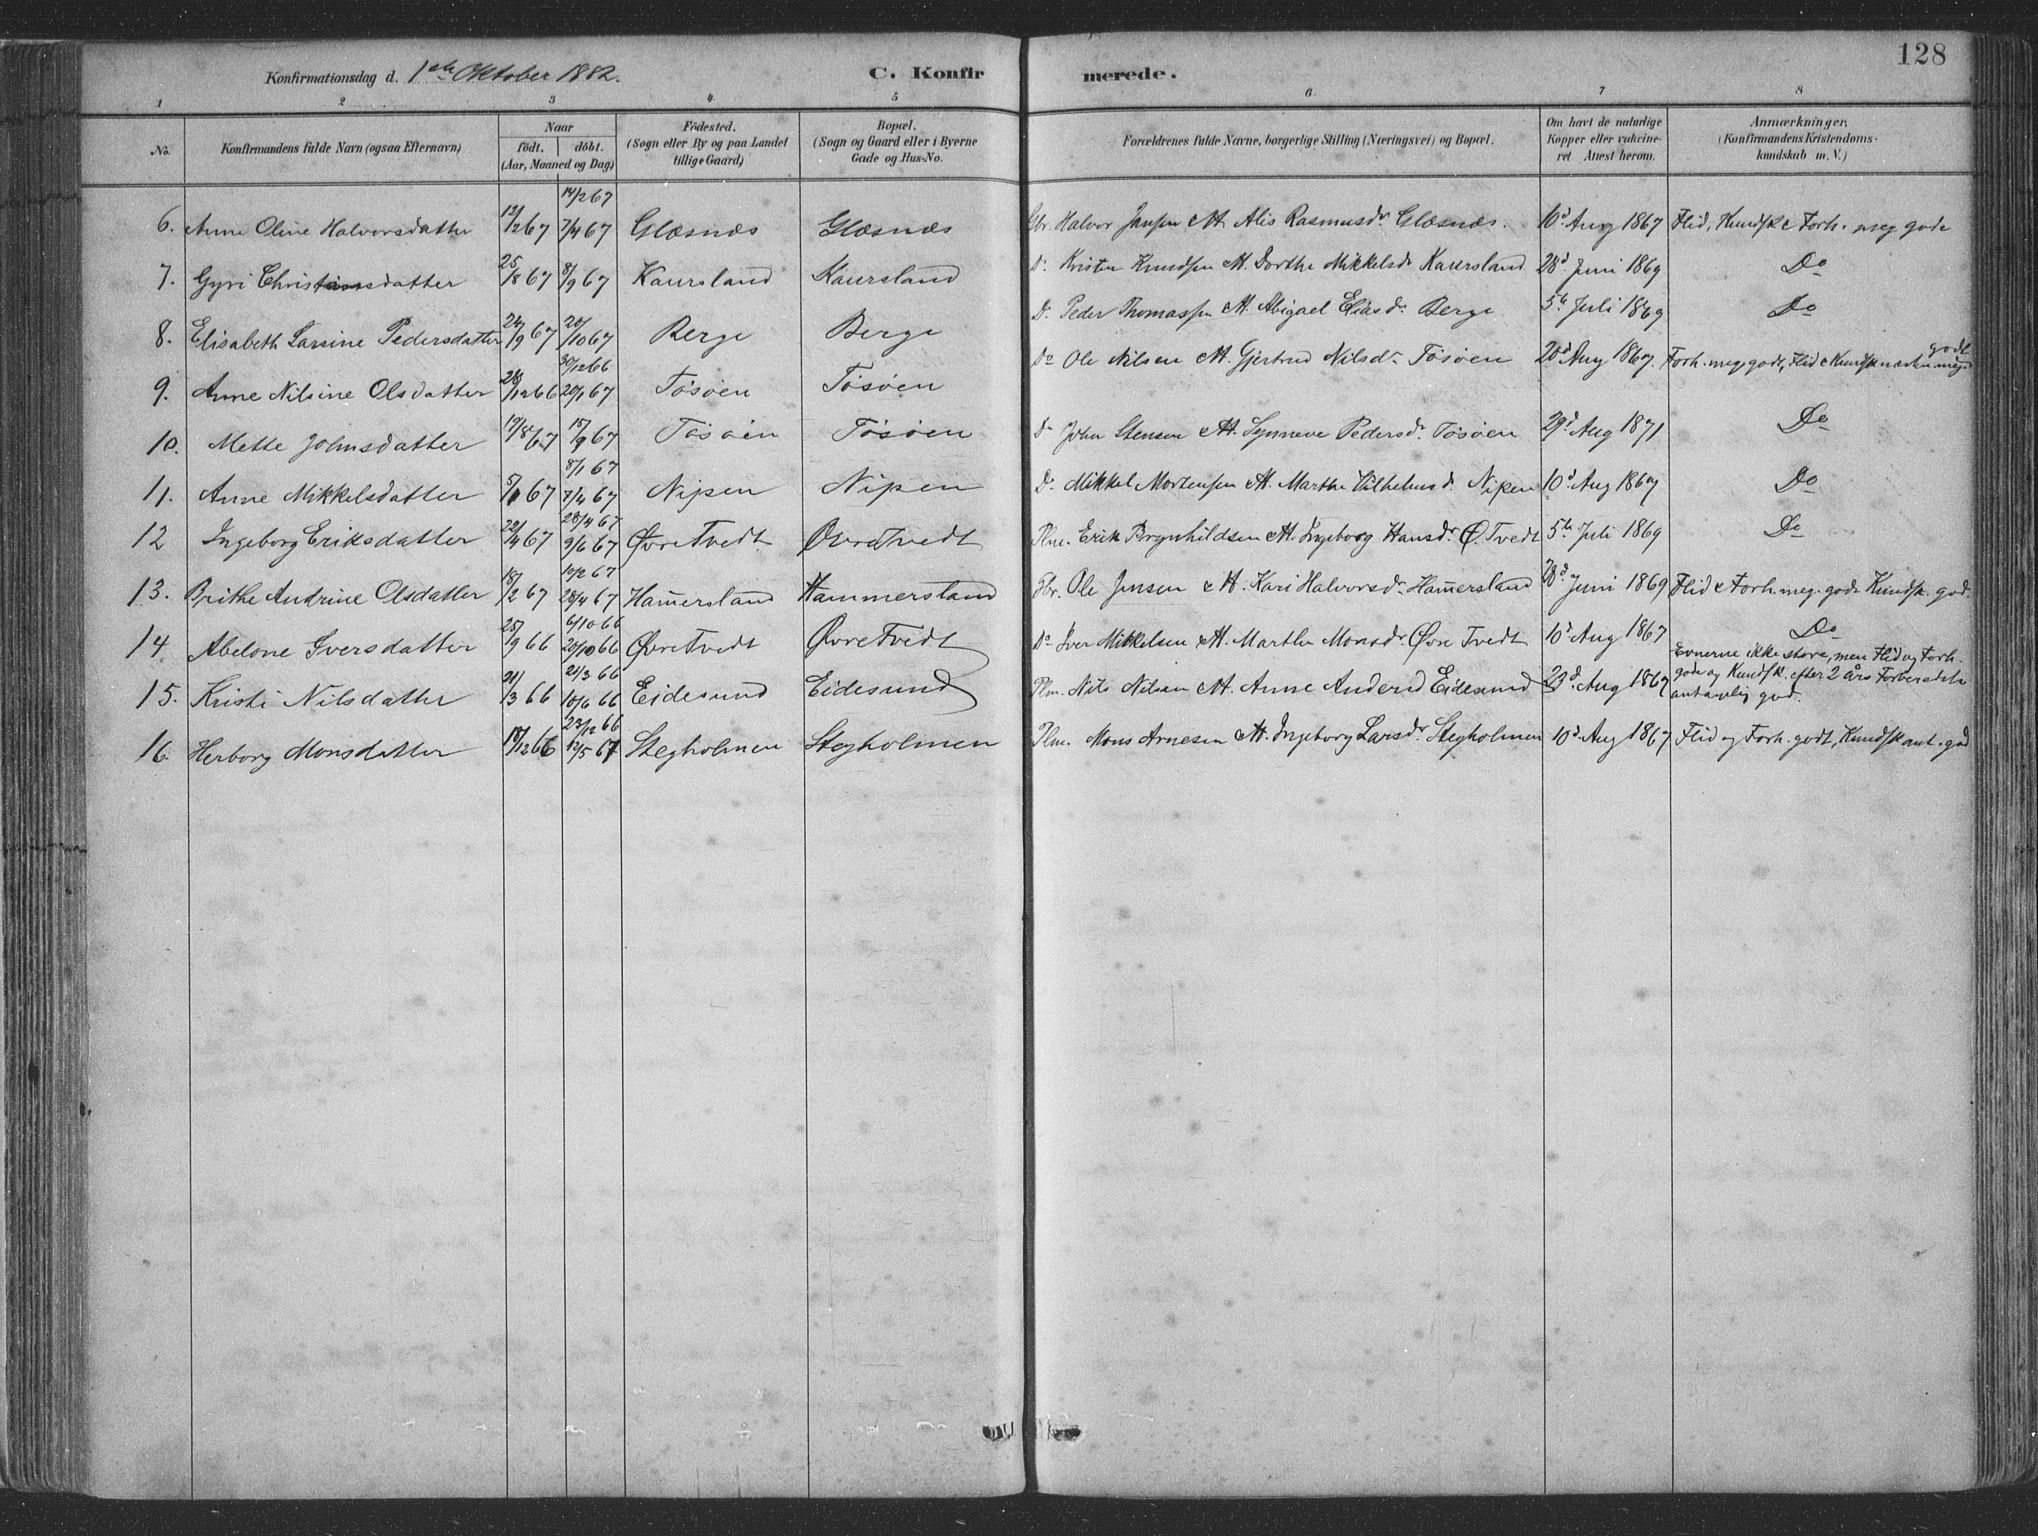 128
Konfirmationsdag d. 1ste Oktober 1882. C. Konfir merede.
1 2 3 4 5 6 7 8
No. Konfirmandens fulde Navn (ogsaa Efternavn) Naar födt. döbt. (Aar, Maaned og Dag) Födested. (Sogn eller By og paa Landet tillige Gaard) Bopæl. (Sogn og Gaard eller i Byerne Gade og Hus-No. Forældrenes fulde Navne, borgerlige Stilling (Næringsvei) og Bopæl. Om havt de naturlige Kopper eller vakcineret Attest herom. Anmærkninger. (Konfirmandens Kristendomskundskab m. V.)
6. Anne Oline Halvorsdatter 12/2 67 14/2 67 7/4 67 Glæsnæs Glæsnæs Gbr. Halvor Jensen & M. Alis Rasmusdr Glæsnæs. 10d Aug 1867 Flid, Kundsk & Forh. meg gode
7. Gyri Christiansdatter 25/8 67 8/9 67 Kaursland Kaursland Do Kristen Knudsen M. Dorthe Mikkelsd. Kaursland 28d Juni 1869 Do
8. Elisabeth Larsine Pedersdatter 24/9 67 20/10 67 Berge Berge Do Peder Thomassen M. Abigael Eliasdr Berge 5te Juli 1869 Do
9. Anne Nilsine Olsdatter 28/12 66 30/12 66 20/1 67 Tösöen Tösöen Do Ole Nilsen M. Gjertrud Nilsdr Tösöen 20d Aug 1867. Forh. meg. gode, Flid & Kundsk næsten meg. godt
10. Mette Johnsdatter 19/8 67 15/9 67 Tösöen Tösöen Do John Stensen M. Synneve Pedersd. Tösöen 29d Aug 1871 Do
11. Anne Mikkelsdatter 5/1 67 8/1 67 7/4 67 Nipen Nipen Do Mikkel Mortensen M. Marthe Vilhelmsd. Nipen 10d Aug 1867 Do
12 Ingeborg Eriksdatter 22/4 67 28/4 67 9/6 67 Øvre Tvedt Øvre Tvedt Plm. Erik Brynhildsen M. Ingeborg Hansdr Ø. Tvedt 5te Juli 1869 Do
13. Brithe Andrine Olsdatter 18/2 67 28/4 67 Ham̄ersland Hammersland Gbr. Ole Jensen & M. Kari Halvorsdr Ham̄ersland 28d Juni 1869 Flid & Forh. meg. gode Kundsk. god.
14. Abelone Iversdatter 25/9 66 6/10 66 20/10 66 Øvre Tvedt Øvre Tvedt Do Iver Mikkelsen M. Marthe Monsdr Øvre Tvedt 10d Aug 1867 Do
15. Kristi Nilsdatter 21/3 66 24/3 66 10/6 66 Eidesund Eidesund Plm. Nils Nilsen M. Anne Andersd Eidesund 29d Aug 1867 Evnerne ikke store, men Flid og Forh. gode og Kundsk. efter 2 års Forberedelse antagelig god.
16. Herborg Monsdatter 18/12 66 23/12 66 12/5 67 Stegholmen Stegholmen Plm. Mons Arnesen M. Ingeborg Larsdr Stegholmen 10d Aug 1867 Flid og Forh. godt, Kundsk ant. god